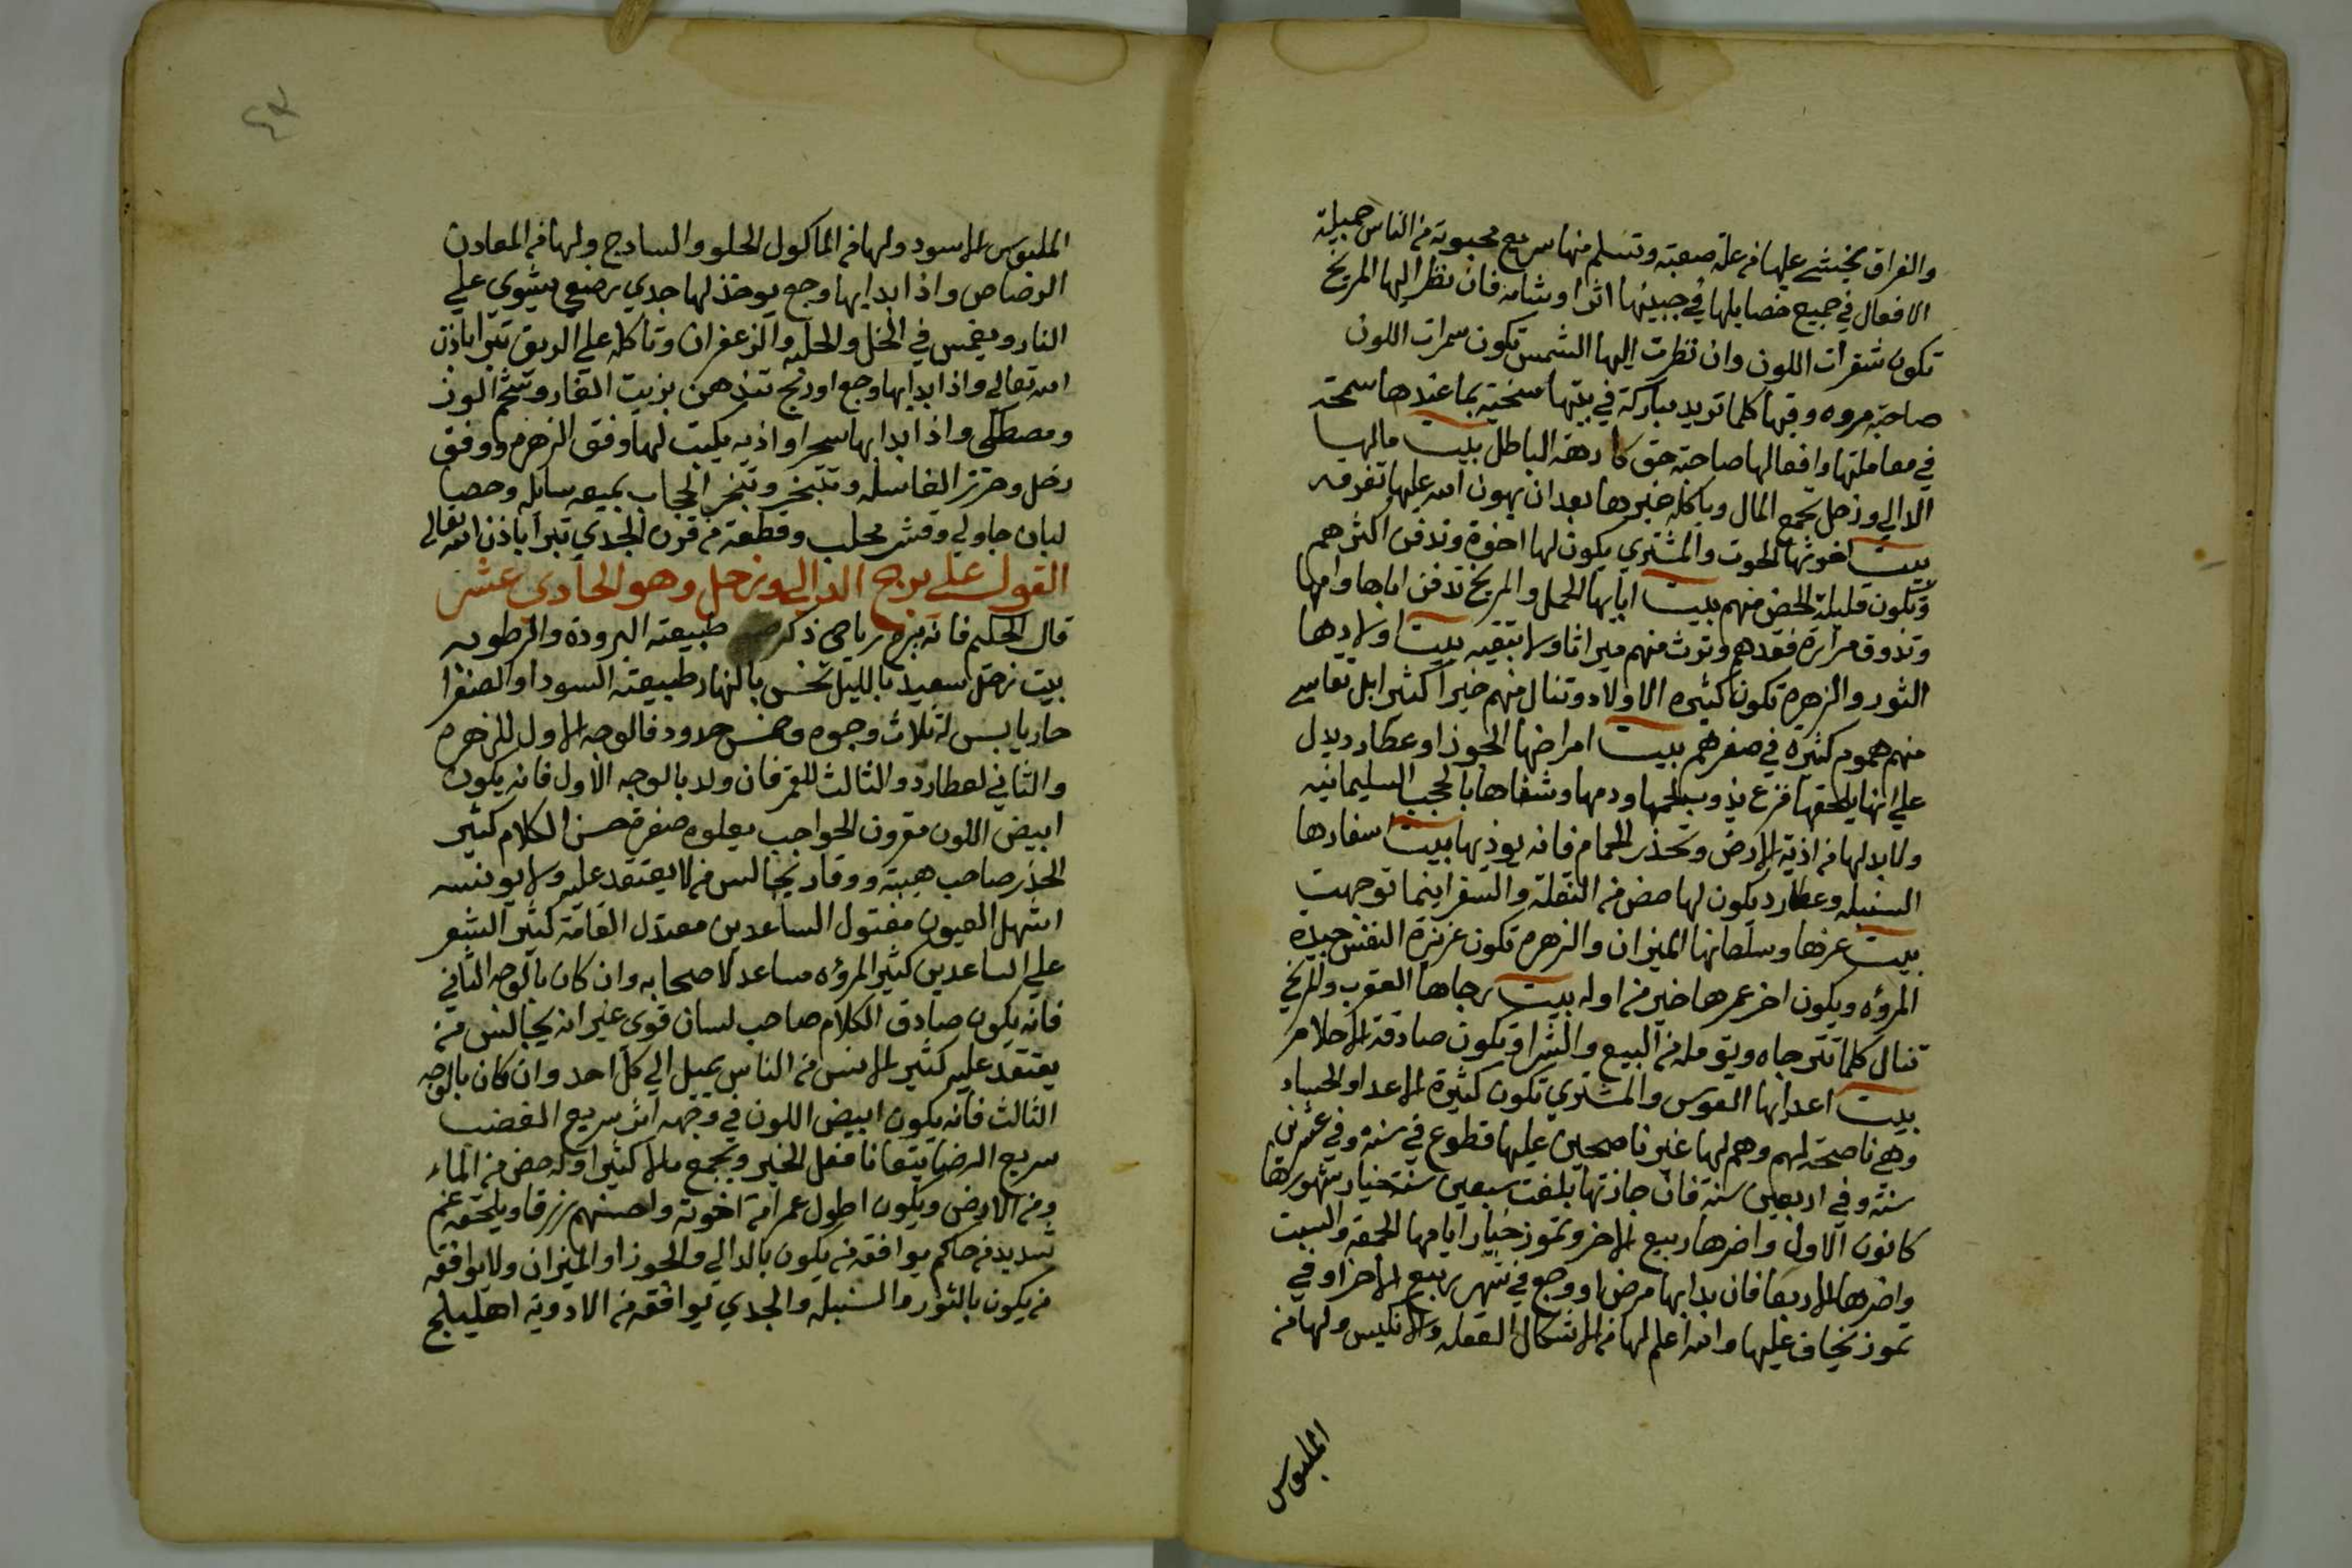 والفراق يخشى عليها من علة صعبة وتسلم منها سريع محبوبة من الناس جميلة
الافعال في جميع خصايلها في جبينها اثرا وشامة فان نظر اليها المريخ
تكون شقرات اللون وان نظرت اليها الشمس تكون سمرات اللون
صاحبة مروه وفيها كلما تريد مباركة في بيتها سخية بما عندها سمحة
في معاملتها وافعالها صاحبة حق كارهة الباطل بيت مالها
الدالي وزحل تجمع المال وياكله غيرها بعد ان يهون الله عليها تفرقه
بيت اخوتها الحوت والمشتري يكون لها اخوة وتدفن اكثرهم
وتكون قليلة الحض منهم بيت ابايها الحمل والمريخ تدفن اباها وامها
وتذوق مرارة فقدهم وتورث منهم ميراثا ولا تبقيه بيت اولادها
الثور والزهره تكون كثيره الاولاد وتنال منهم خيرا كثيرا بل تقاسي
منهم هموم كثيره في صغرهم بيت امراضها الجوزا وعطارد يدل
علي انها يلحقها فزع يذوب لحمها ودمها وشفاها بالحجب السليمانيه
ولابد لها من اذية الارض وتحذر الحمام فانه يوذيها بيت اسفارها
السنبله وعطارد يكون لها حض من النقلة والسفر اينما توجهت
بيت عزها وسلطانها الميزان والزهره تكون عزيزة النفس جيده
المروه ويكون اخر عمرها خير من اوله بيت رجاها العقرب والمريخ
تنال كلما تترجاه وتومله من البيع والشرا وتكون صادقة الاحلام
بيت اعدايها القوس والمشتري تكون كثيرة الاعدا والحساد
وهي ناصحة لهم وهم لها غير ناصحين عليها قطوع في سنة وفي عشرين
سنة وفي اربعين سنة فان جازتها بلغت سبعين سنة خيار شهورها
كانون الاول واضرها ربيع الاخر وتموز خيار ايامها الجمعه والسبت
واضرها الاربعا فان بدا بها مرض او وجع في شهر ربيع الاخر او في
تموز يخاف عليها والله اعلم لها من الاشكال العقله والانكيس ولها من
الملبوس
الملبوس الاسود ولها من الماكول الحلو والسادج ولها من المعادن
الرصاص واذا بدا بها وجع يوخذ لها جدي رضيع يشوي علي
النار ويغمس في الخل والحلبه والزعفران وتاكله علي الريق تبرا باذن
الله تعالي واذا بدا بها وجع او ريح تندهن بزيت الغار وشحم الوز
ومصطكي واذا بدا بها سحر او اذيه يكتب لها وفق الزهره ووفق
زحل وحرز الغاسله وتتبخر وتبخر الحجاب بميعه سايله وحصا
لبان جاولي وقشر محلب وقطعة من قرن الجدي تبرا باذن الله تعالى
القول علي برج الدالي وزحل وهو الحادي عشر
قال الحكيم فانه برج رياحي ذكر طبيعته البرودة والرطوبه
بيت زحل سعيد بالليل نحس بالنهار طبيعته السودا والصفرا
حار يابس له ثلاث وجوه وخمس حدود فالوجه الاول للزهره
والثاني لعطارد والثالث للقمر فان ولد بالوجه الاول فانه يكون
ابيض اللون مقرون الحواجب يعلوه صفرة حسن الكلام كثير
الحذر صاحب هيبة ووقار يجالس من لا يفتقد عليه ولا يونسه
اشهل العيون مفتول الساعدين معتدل القامة كثير الشعر
علي الساعدين كثير المروه مساعد لاصحابه وان كان بالوجه الثاني
فانه يكون صادق الكلام صاحب لسان قوي غير انه يجالس من
يفتقد عليه كثير الانس من الناس يميل الي كل احد وان كان بالوجه
الثالث فانه يكون ابيض اللون في وجهه اثر سريع الغضب
سريع الرضا يتعانا فعل الخير ويجمع مالا كثيرا وله حض من الماء
ومن الارض ويكون اطول عمرا من اخوته واحسنهم رزقا ويلحقه غم
شديد من حاكم يوافقه من يكون بالدالي والجوزا والميزان ولا يوافقه
من يكون بالثور والسنبله والجدي يوافقه من الادوية اهليلج